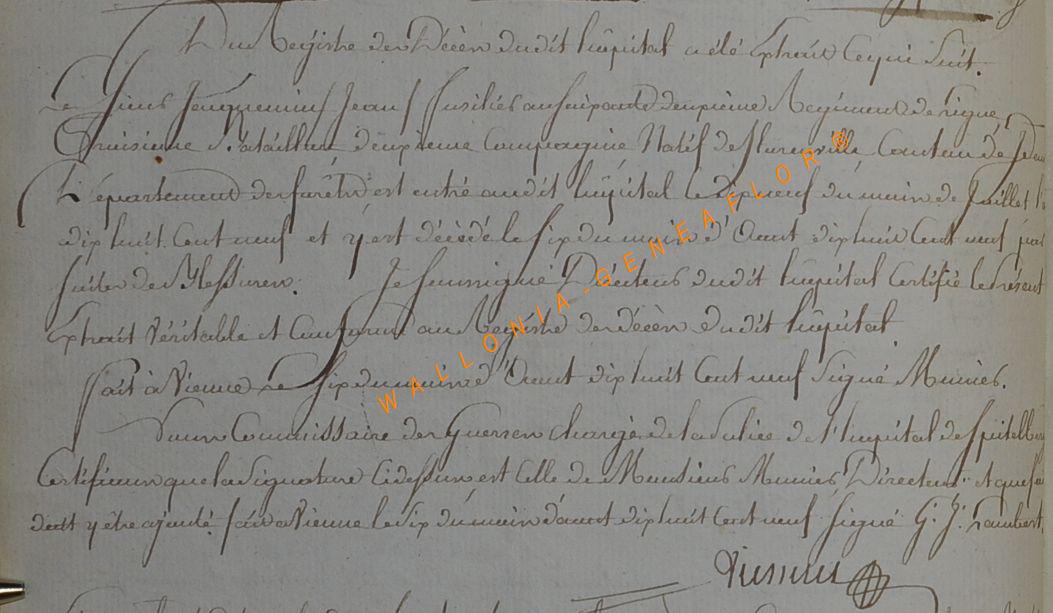 Du Registre des Décès dudit hôpital a été Extrait Ce qui Suit.
Le Sieur Jacquemin Jean fusilier au Soixante deuxième Regiment de Ligne
Troisieme Bataillon deuxieme Compagnie Natif de Canton de
Departement des forêts est entré audit hôpital le dix neuf du mois de Juillet
dix huit Cent neuf et y est décédé le six du mois d'Aout dix huit Cent neuf par
suites de Blessures. Je soussigné Directeur dudit hôpital Certifie le Présent
Extrait Véritable et Conforme au Registre des décès dudit hôpital
fait à Vienne le six du mois d'Aout dix huit Cent neuf Signé Munier.
Nous Commissaire des Guerres chargé de la Police de l'hôpital de
Certifions que la Signature Cidessus est Celle de Monsieur Munier Directeur et que foi
doit y être ajouté fait à Vienne le six du mois d'aout dix huit Cent neuf Signé G. J. Lambert
WALLONIA-GENEAFLOR®